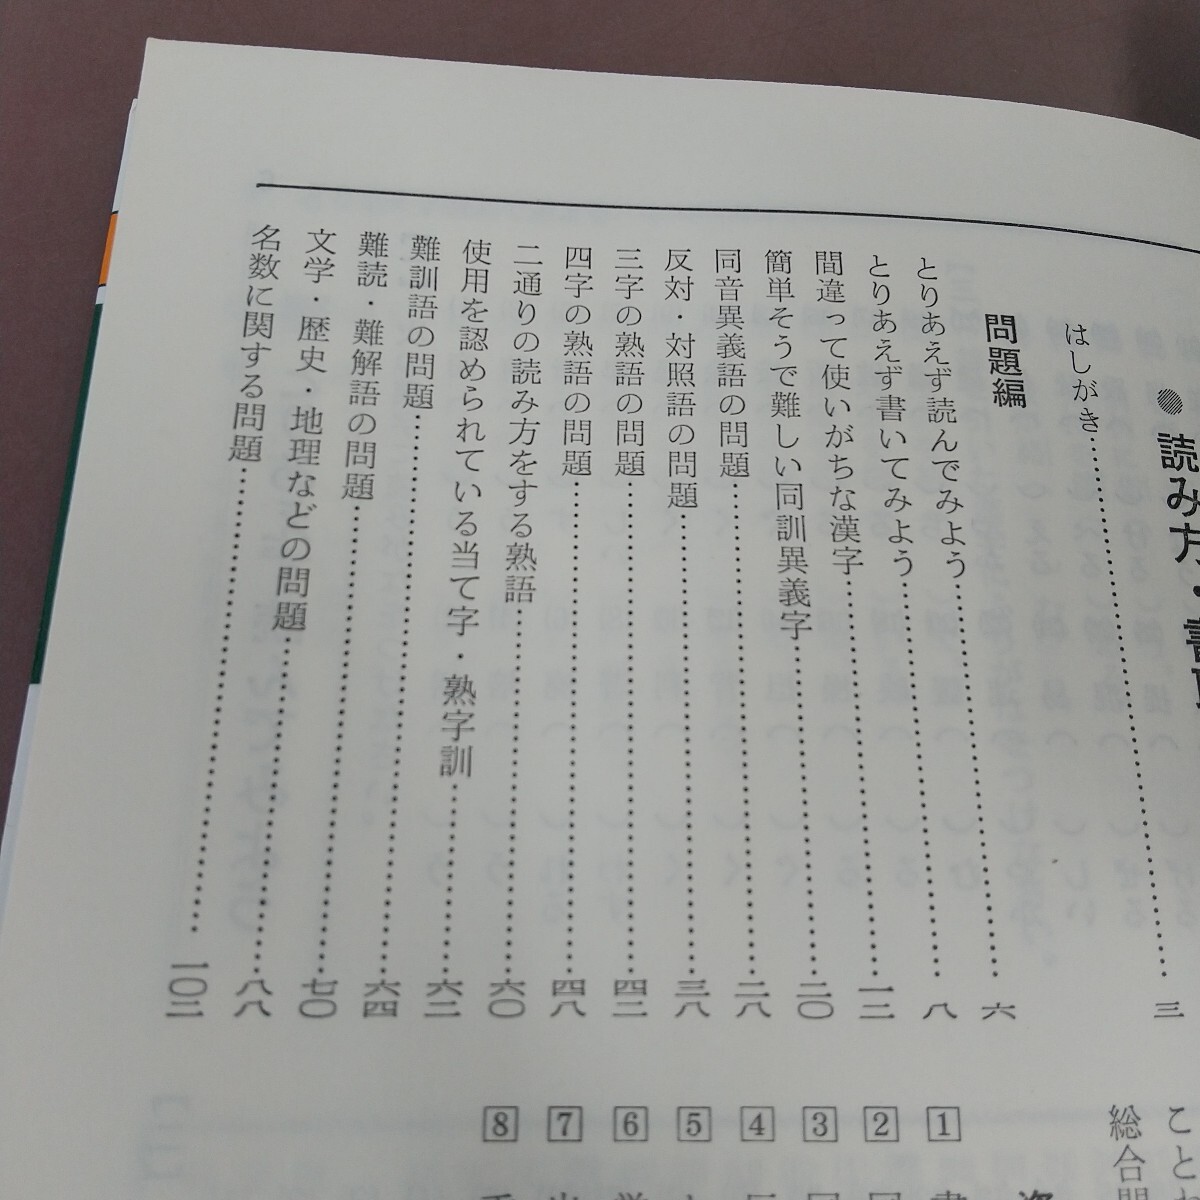 読み方・書
はしがき……三
問題編
とりあえず読んでみよう……六
とりあえず書いてみよう……八
間違って使いがちな漢字……一二
簡単そうで難しい同訓異義字……二〇
同音異義語の問題……二八
反対・対照語の問題……三八
三字の熟語の問題……四二
四字の熟語の問題……四八
二通りの読み方をする熟語……六〇
使用を認められている当て字・熟字訓……六二
難訓語の問題……六四
難読・難解語の問題……七〇
文学・歴史・地理などの問題……八八
名数に関する問題……一〇二
こと
総合
1
2
3
4
5
6
7
8